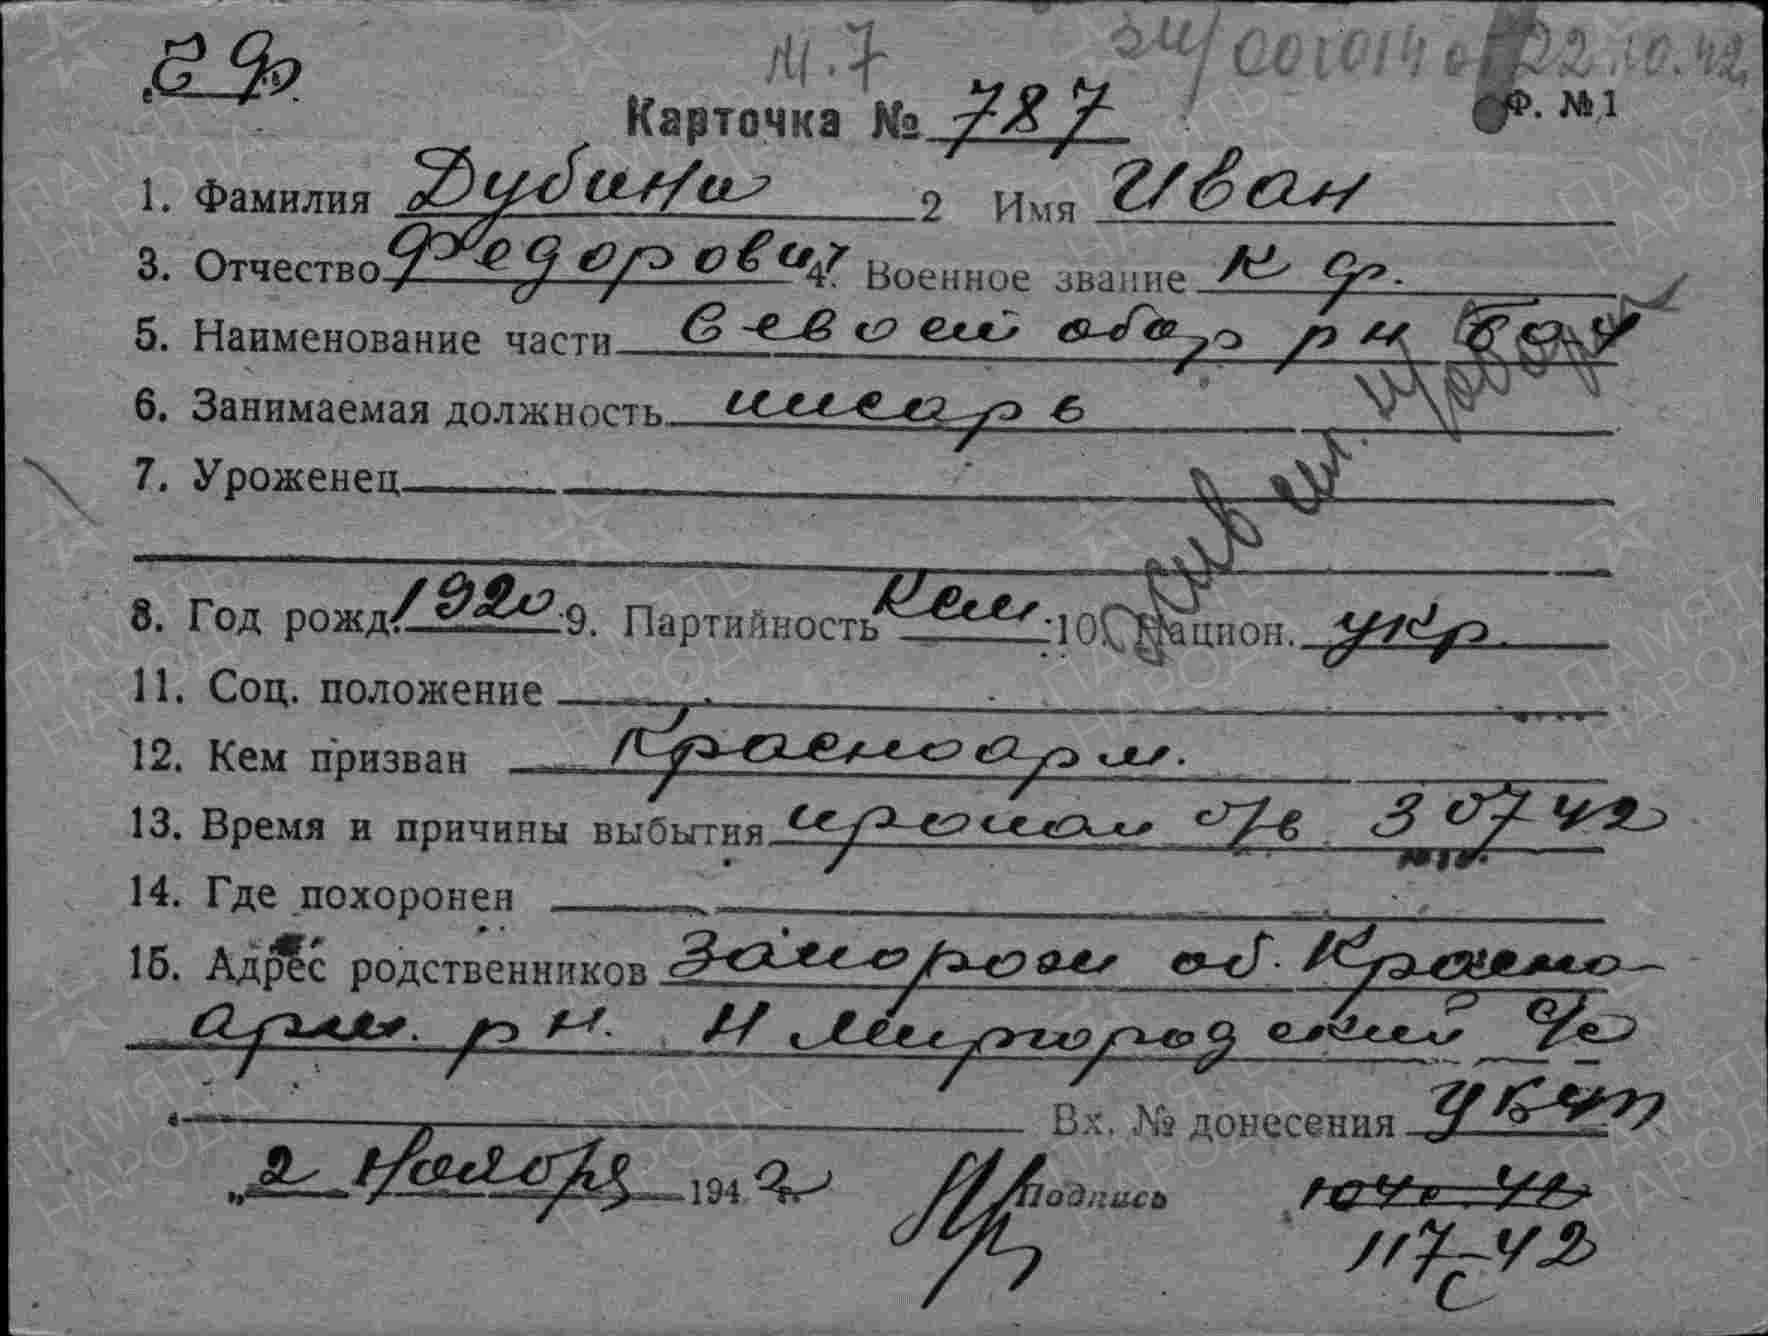 М.7
Карточка № 787
Ф. №1
1. Фамилия Дубина 2 Имя Иван
3. Отчество Федорович 4. Военное звание к ф.
5. Наименование части Севой обор рн БФ
6. Занимаемая должность писарь
7. Уроженец
8. Год рожд. 1920 9. Партийность Ксм 10. Национ. укр.
11. Соц. положение
12. Кем призван Красноарм.
13. Время и причины выбытия пропал б/в 3 07 42
14. Где похоронен
15. Адрес родственников Запорож об. Красно-
арм. рн. Н Миргородский с/с
Вх. № донесения
„2 ноября 1942 Подпись
117-42
с